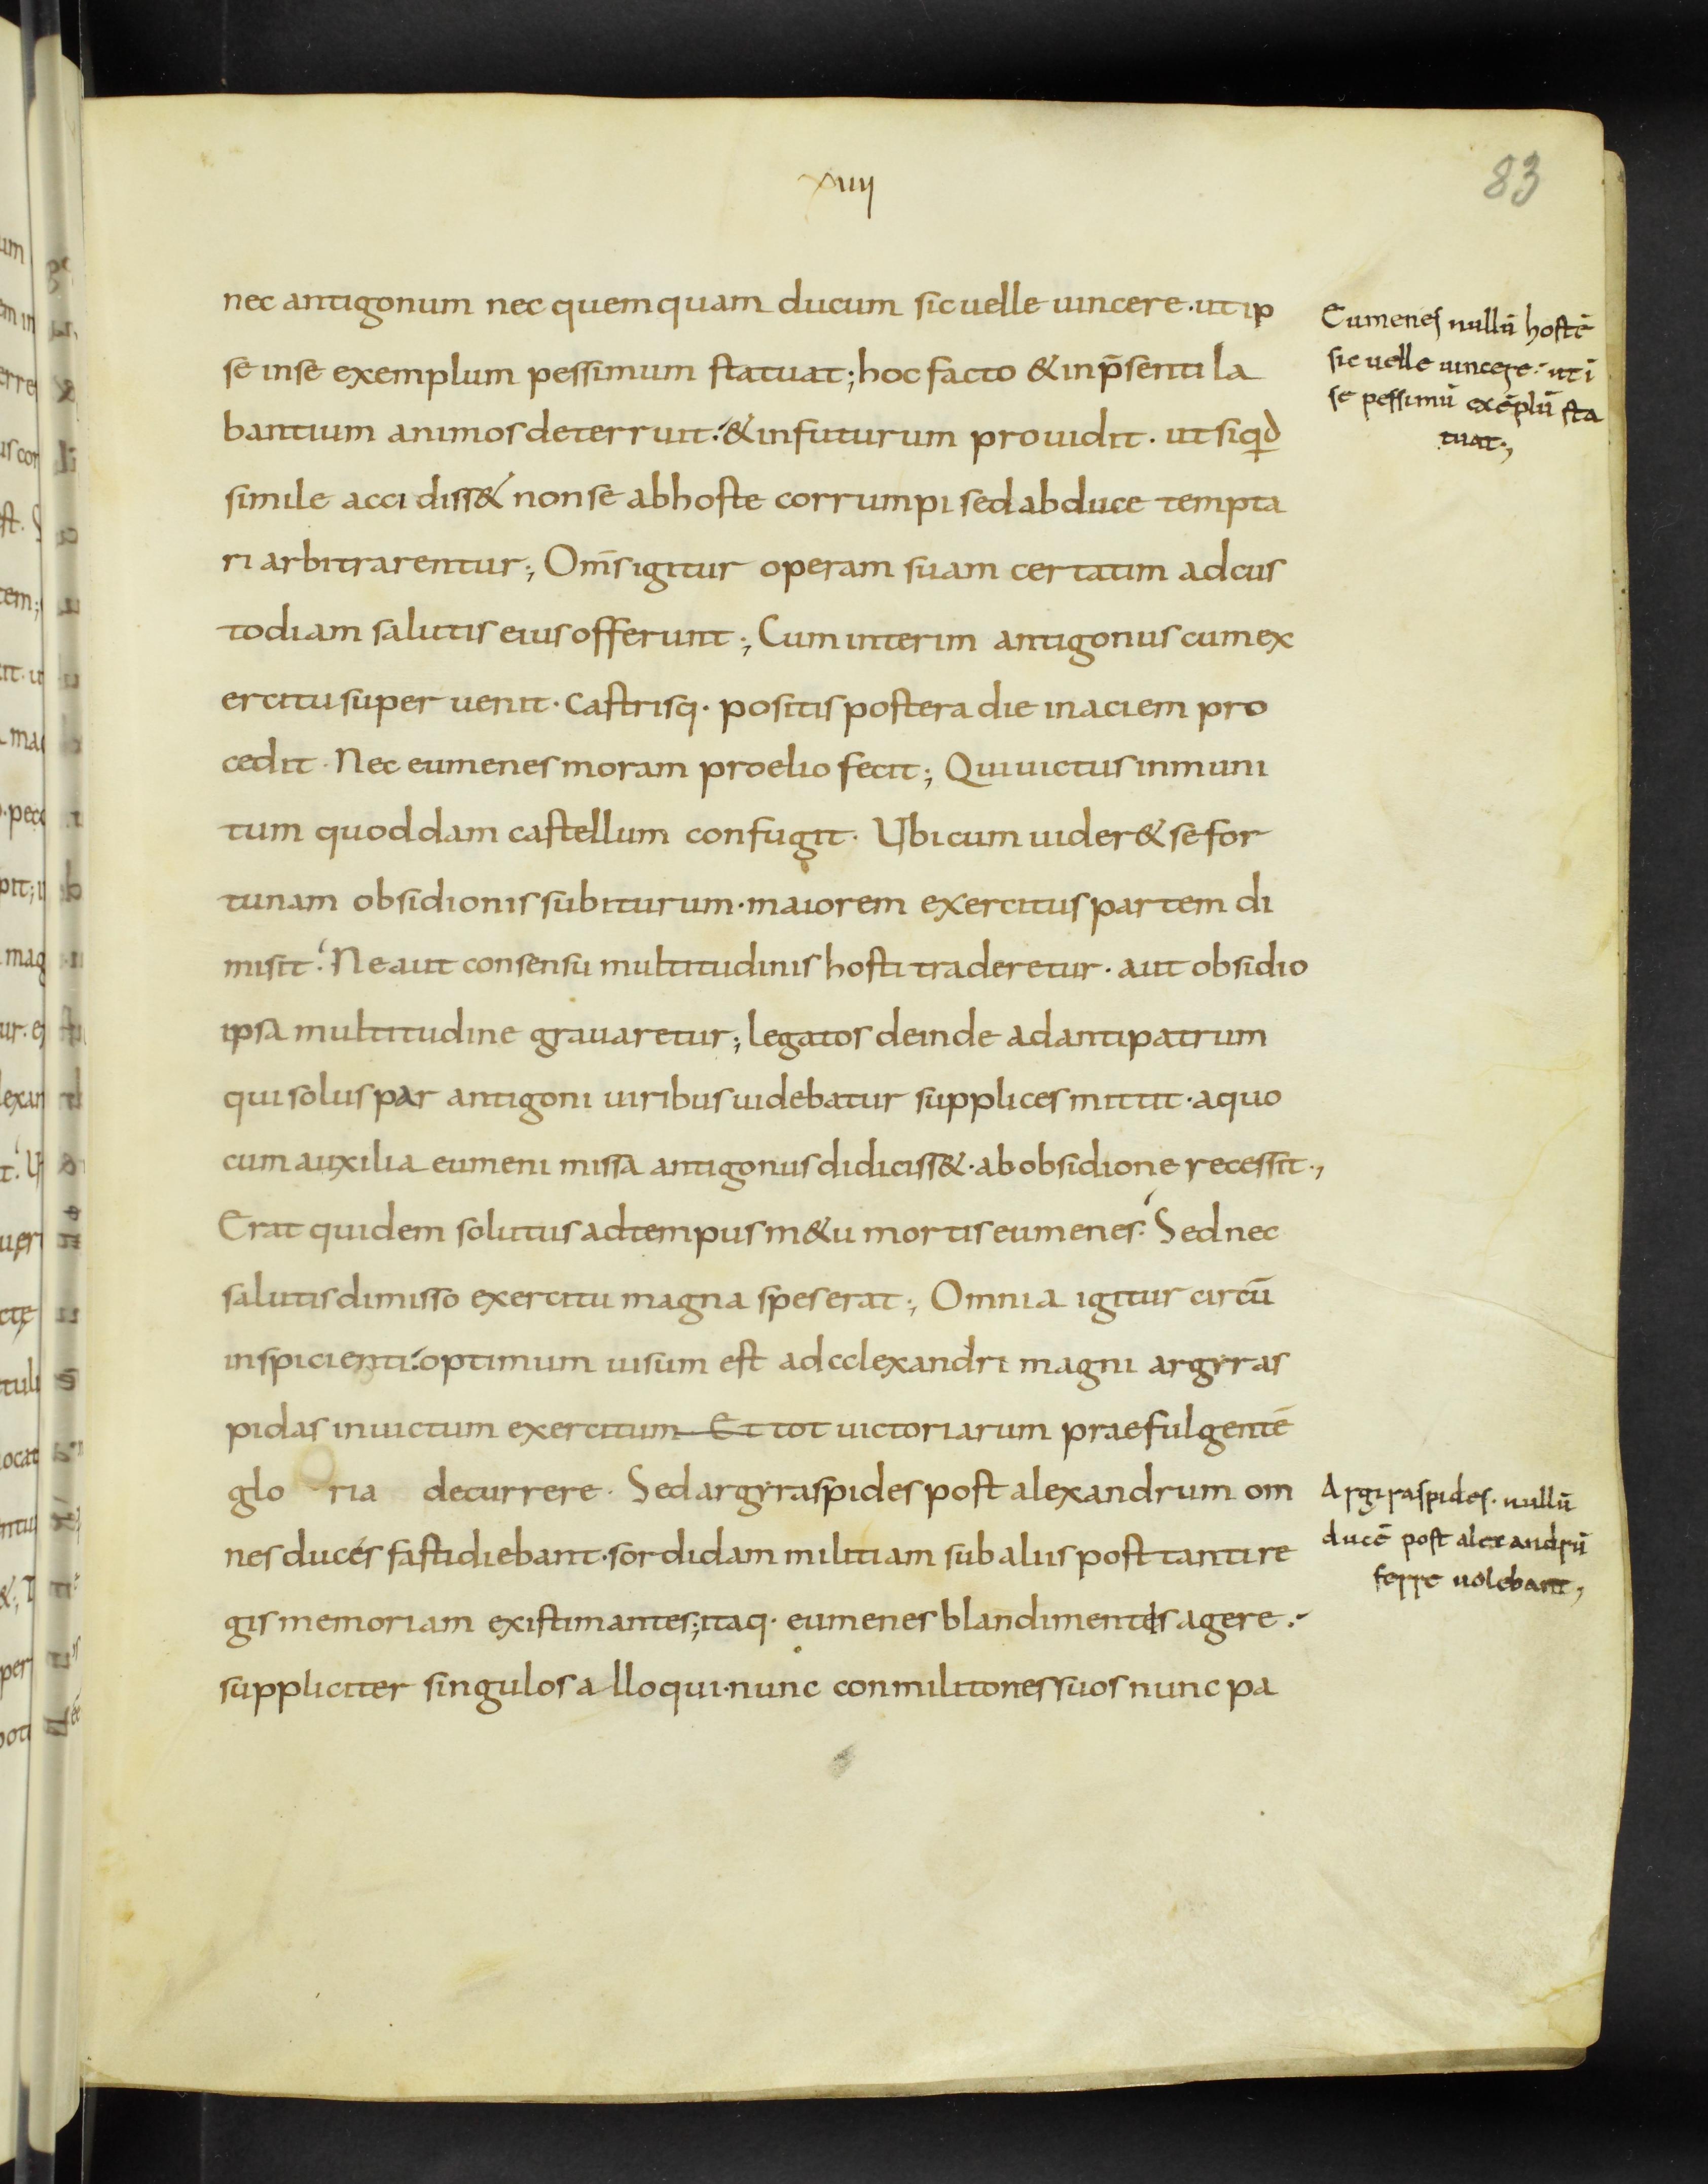 xiiij
83
nec antigonum nec quemquam ducum sic uelle uincere · ut ip
se inse exemplum pessimum statuat; hoc facto & inp̄senti la
bantium animos deterruit:& infuturum prouidit · ut siqd̄
simile accidiss& non se abhoste corrumpi sed abduce tempta
ri arbitrarentur; Om̄s igitur operam suam certatim adcus
todiam salutis eius offerunt; Cum interim antigonus cum ex
ercitu superuenit · castrisq· positis postera die inaciem pro
cedit · Nec eumenes moram proelio fecit; Qui uictus inmuni
tum quoddam castellum confugit · Ubi cum uider& se for
tunam obsidionis subiturum · maiorem exercitus partem di
misit: Ne aut consensu multitudinis hosti traderetur · aut obsidio
ipsa multitudine grauaretur; legatos deinde adantipatrum
qui solus par antigoni uiribus uidebatur supplices mittit · aquo
cum auxilia eumeni missa antigonus didiciss& · ab obsidione recessit;
Erat quidem solutus adtempus m&u mortis eumenes: Sed nec
salutis dimisso exercitu magna spes erat; Omnia igitur circū
inspicienti: optimum uisum est ad cclexandri magni argyras
pidas inuictum exercitum Et tot uictoriarum praefulgentē
glo ria decurrere · Sed argyraspides post alexandrum om
nes duces fastidiebant · sordidam militiam sub aliis post tanti re
gis memoriam existimantes; itaq· eumenes blandimentis agere :
suppliciter singulos alloqui · nunc conmilitones suos nunc pa
Eumenes nullū hostē
sic uelle uincere: ut ī
se pessimū exēplū sta
tuat;
Argiraspides · nullū
ducē post alexandrū
ferre uolebant,